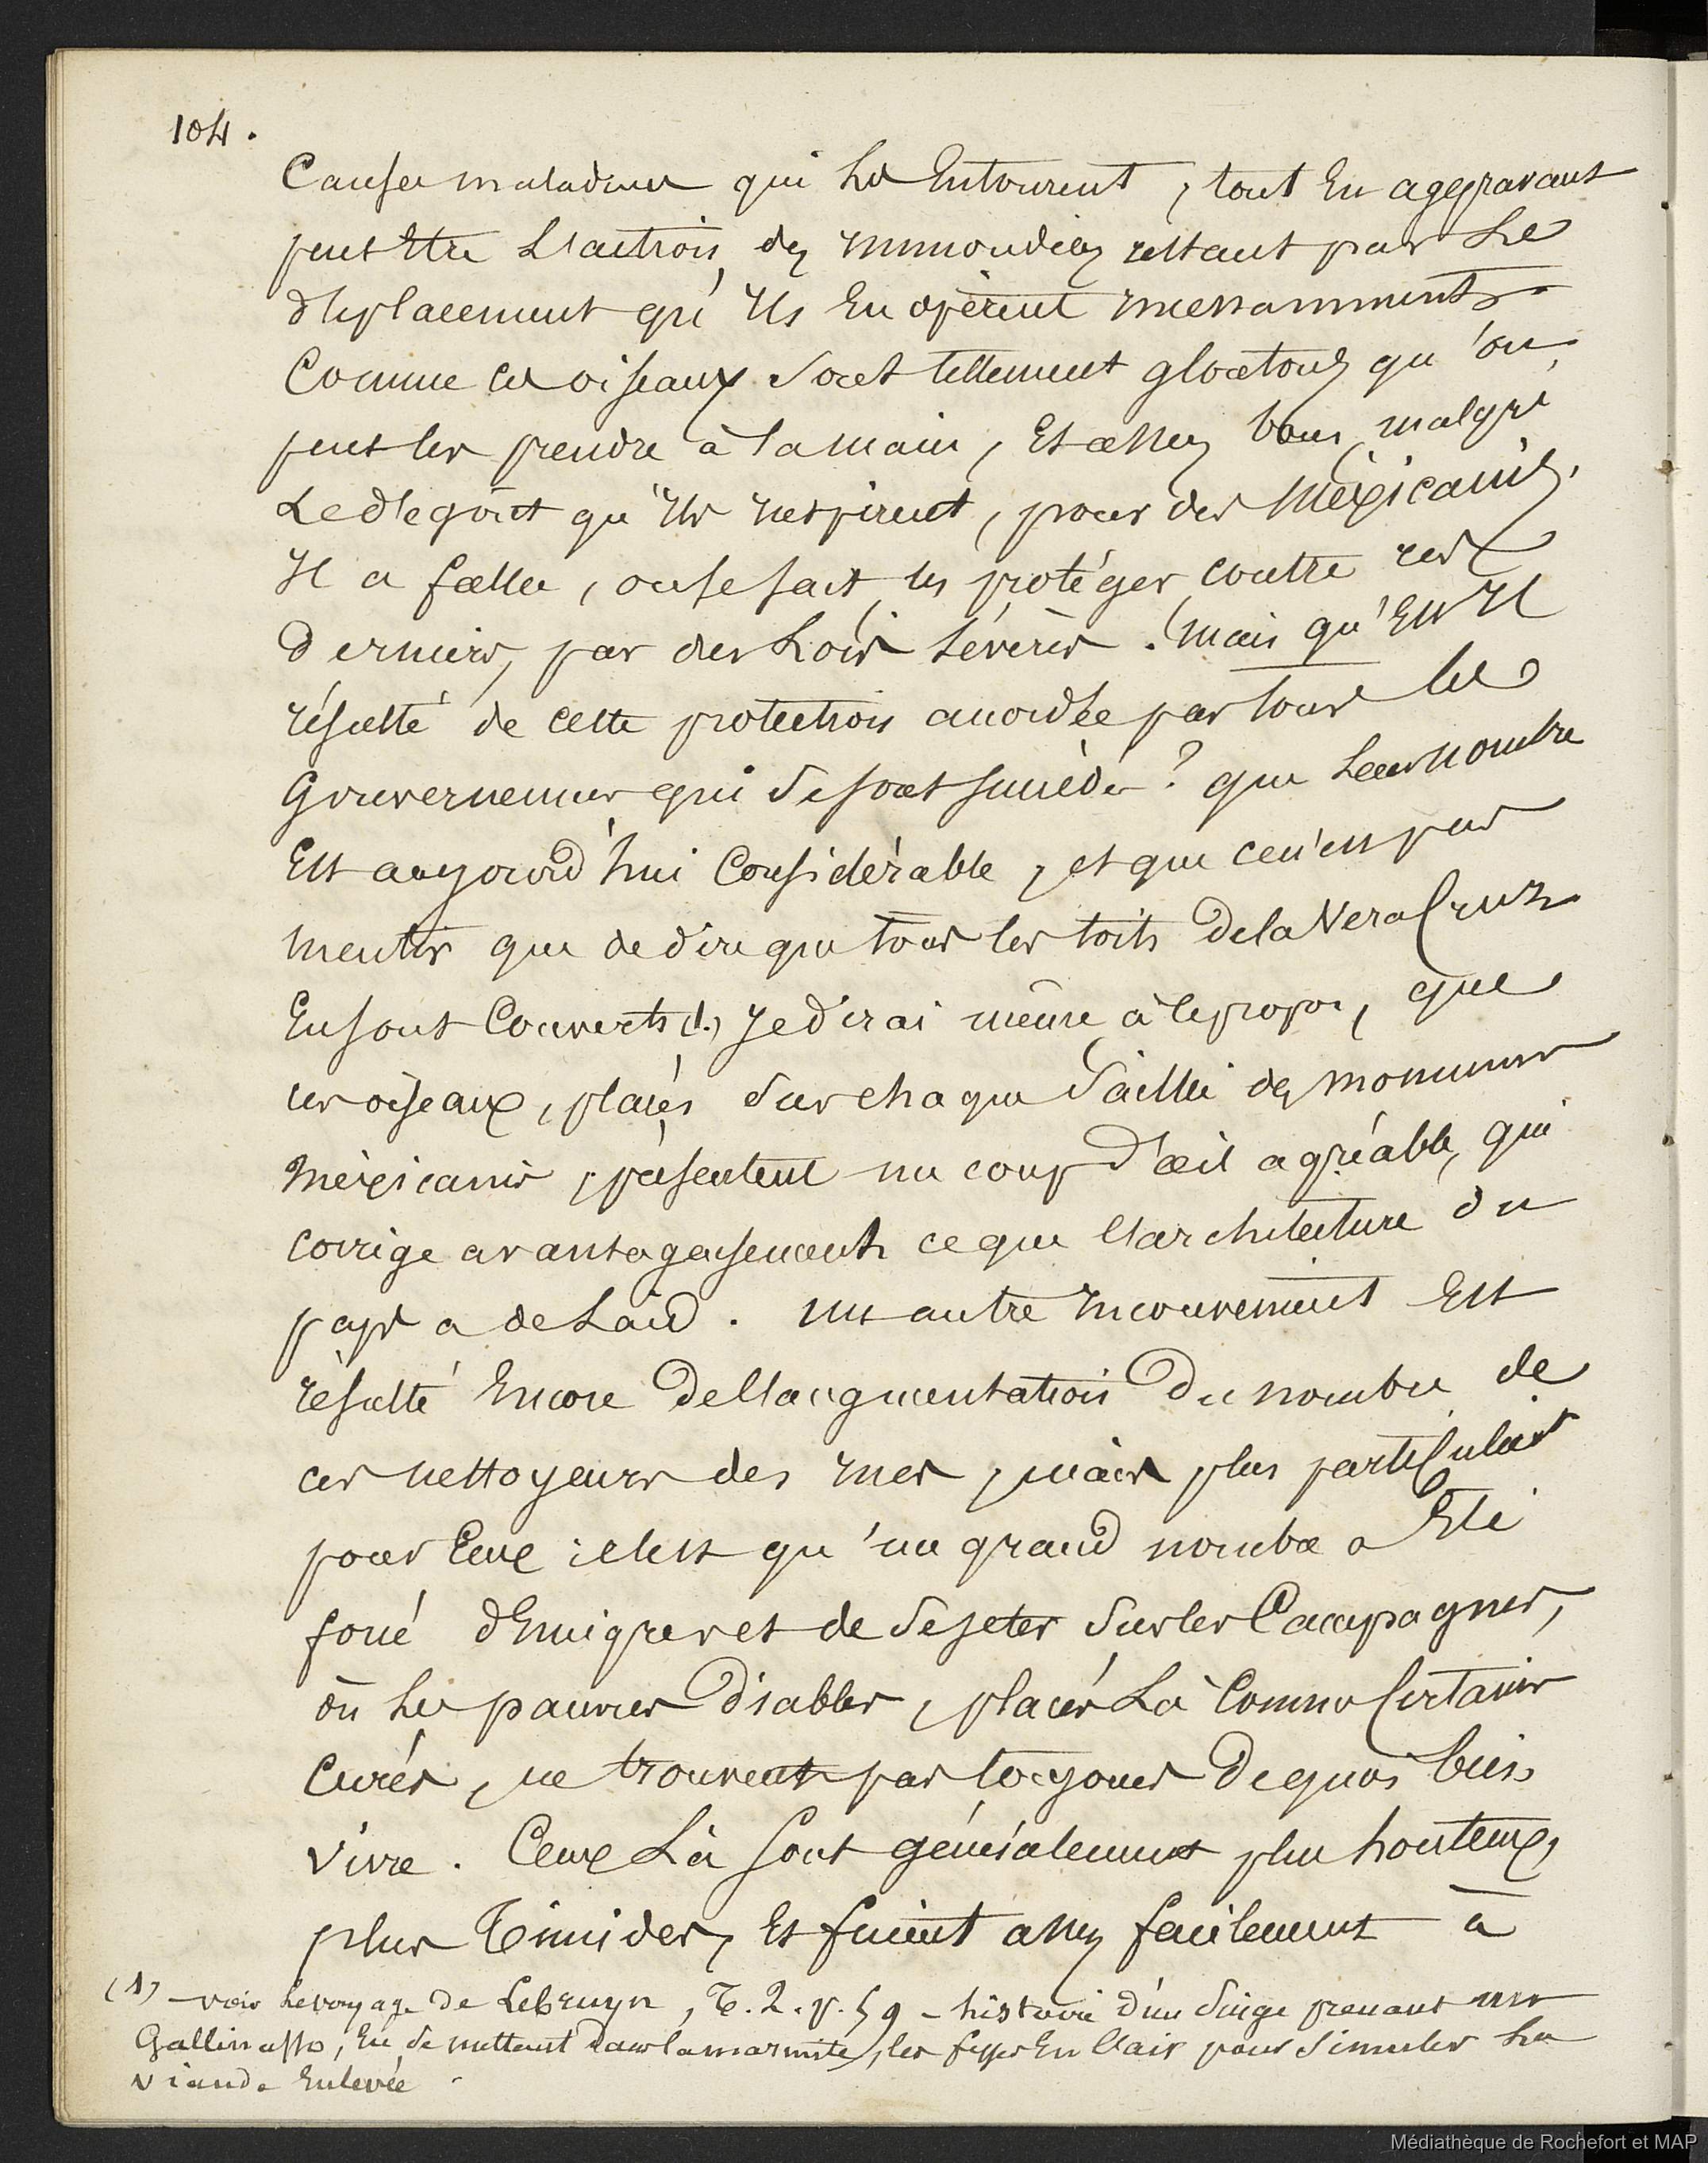 104.
Causes maladives qui les Entourent, tout En aggravant
peut Etre L'action des immondices restant par Le
déplacement qu'Ils En opèrent incessamment.
Comme ces oiseaux sont tellement gloutons qu'on
peut les prendre à la main, Et assez bons malgré
Le dégoût qu'Ils Inspirent, pour des Méxicains,
Il a fallu, on le sait, les protéger contre ces
derniers, par des Lois sévères. Mais qu'Est Il
résulté de cette protection accordée par tous les
Gouverneurs qui se sont succédés ? que Leur nombre
Est aujourd'hui Considérable, et que ce n'est pas
mentir que de dire que tous les toits de la Vera Cruz
En sont Couverts (1.) Je dirai même, à ce propos, que
ces oiseaux, placés sur chaque saillie des monumens
méxicains, présentent un coup d'œil agréable, qui
corrige avantageusement ce que l'architecture du
pays a de Laid. Un autre inconvénient Est
résulté Encore de l'augmentation du nombre de
ces nettoyeurs des rues, mais plus particulier
pour Eux : c'est qu'un grand nombre a Eté
forcé d'Emigrer et de se jeter sur les Campagnes,
où les pauvres diables, placés Là Comme Certains
Curés, ne trouvent pas toujours de quoi bien
vivre. Ceux Là sont généralement plus honteux,
plus Timides, Et fuient assez facilement à
(1) - voir Le voyage de Lebruyn, T. 2. p. 59 - histoire d'un Singe prenant un
Gallinasso, En se mettant dans la marmite, les fesses En l'air pour simuler La
viande Enlevée.
Médiathèque de Rochefort et MAP